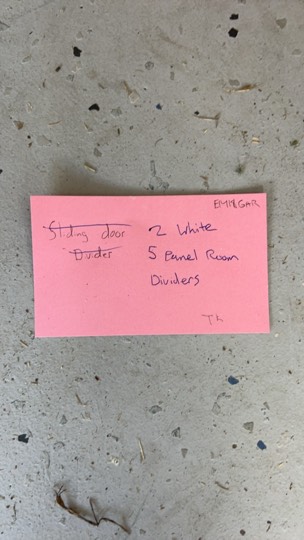 EMPIGAR
Sliding door
Divider
2 White
5 Panel Room
Dividers